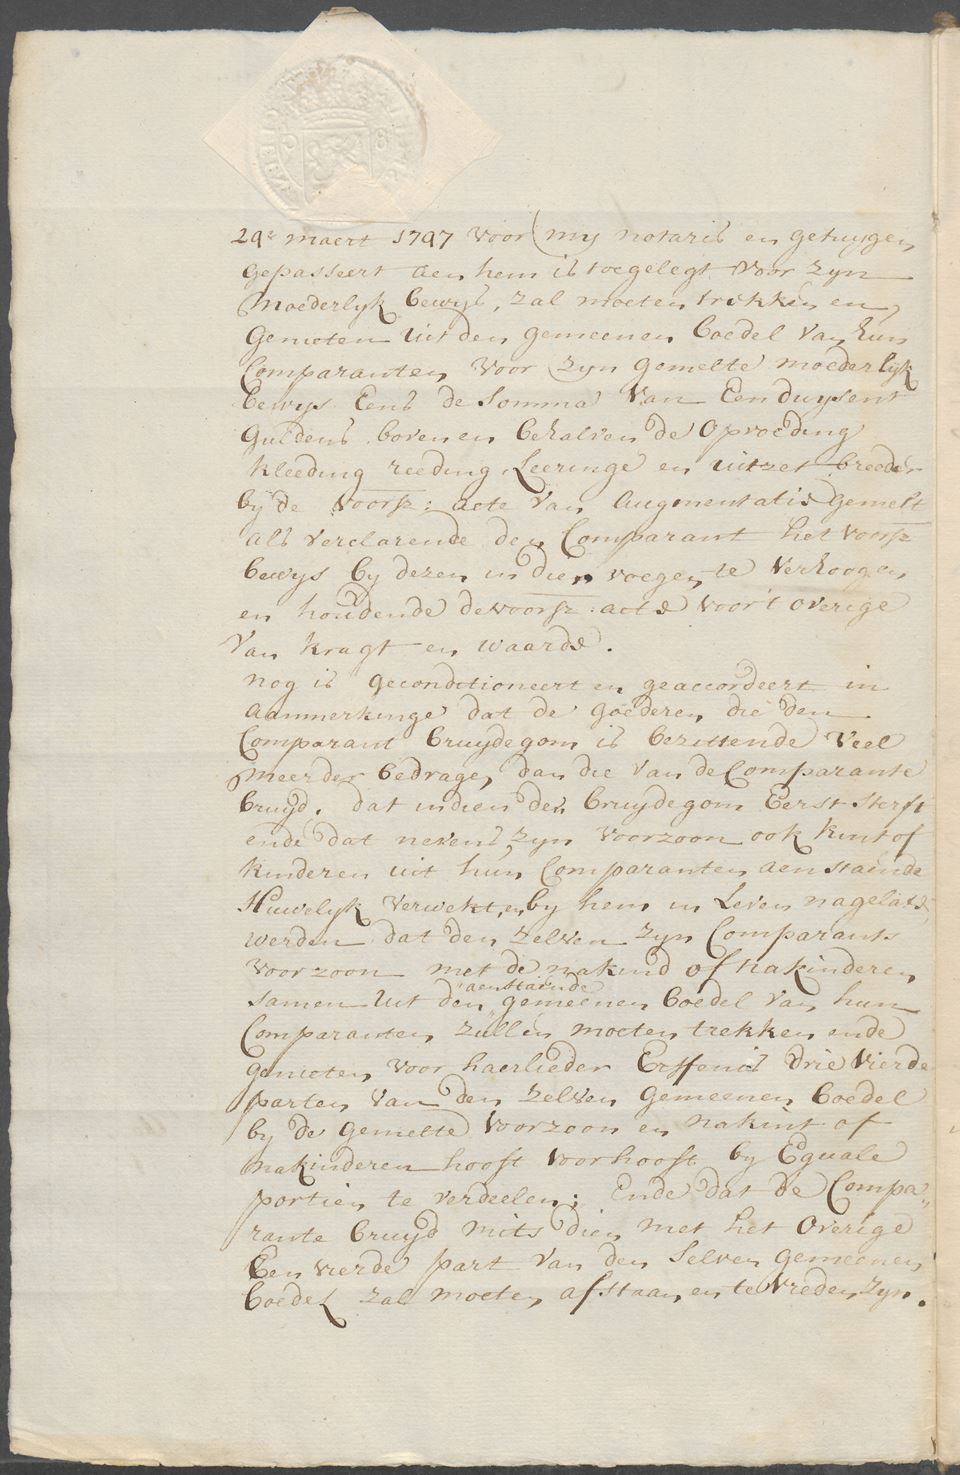 29e maert 1797 voor my notaris en getuygen
gepasseert aen hem is toegelegt voor zyn
Moederlyk bewys, zal moeten trekken en
genieten uit den gemeenen boedel van hun
Comparanten voor zyn gemelte moederlyk
bewys Eens de somma van Eenduysent
guldens boven en behalven de opvoeding
kleeding reeding Leeringe en uitzet breeder
by de voorsz: acte van augmentatie gemelt
als verclarende den Comparant het voorsz
bewys by dezen in dien voegen te verhoogen
en houdende de voorsz: acte voor 't overige
van kragt en waarde.
nog is geconditioneert en geaccordeert in
aanmerkinge dat de goederen die den
Comparant bruydegom is bezittende veel
meerder bedragen dan die van de Comparante
bruyd. dat indien den bruydegom Eerst sterft
ende dat nevens zyn voorzoon ook kint of
kinderen uit hun Comparanten aenstaende
Huwelyk verwekt, en by hem in Leven nagelate
werden dat den zelven zyn Comparants
voorzoon met de nakind of nakinderen
samen uit den aenstaende gemeenen boedel van hun
Comparanten zullen moeten trekken ende
genieten voor haerlieder Erffenis drie vierde
parten van den zelven gemeenen boedel
by de gemelte voorzoon en nakint of
nakinderen hooft voor hooft by Equale
portien te verdeelen; Ende dat de Compa„
rante bruyd mits dien met het overige
Een vierde part van den selven gemeenen
boedel zal moeten afstaan en te vreden zyn.